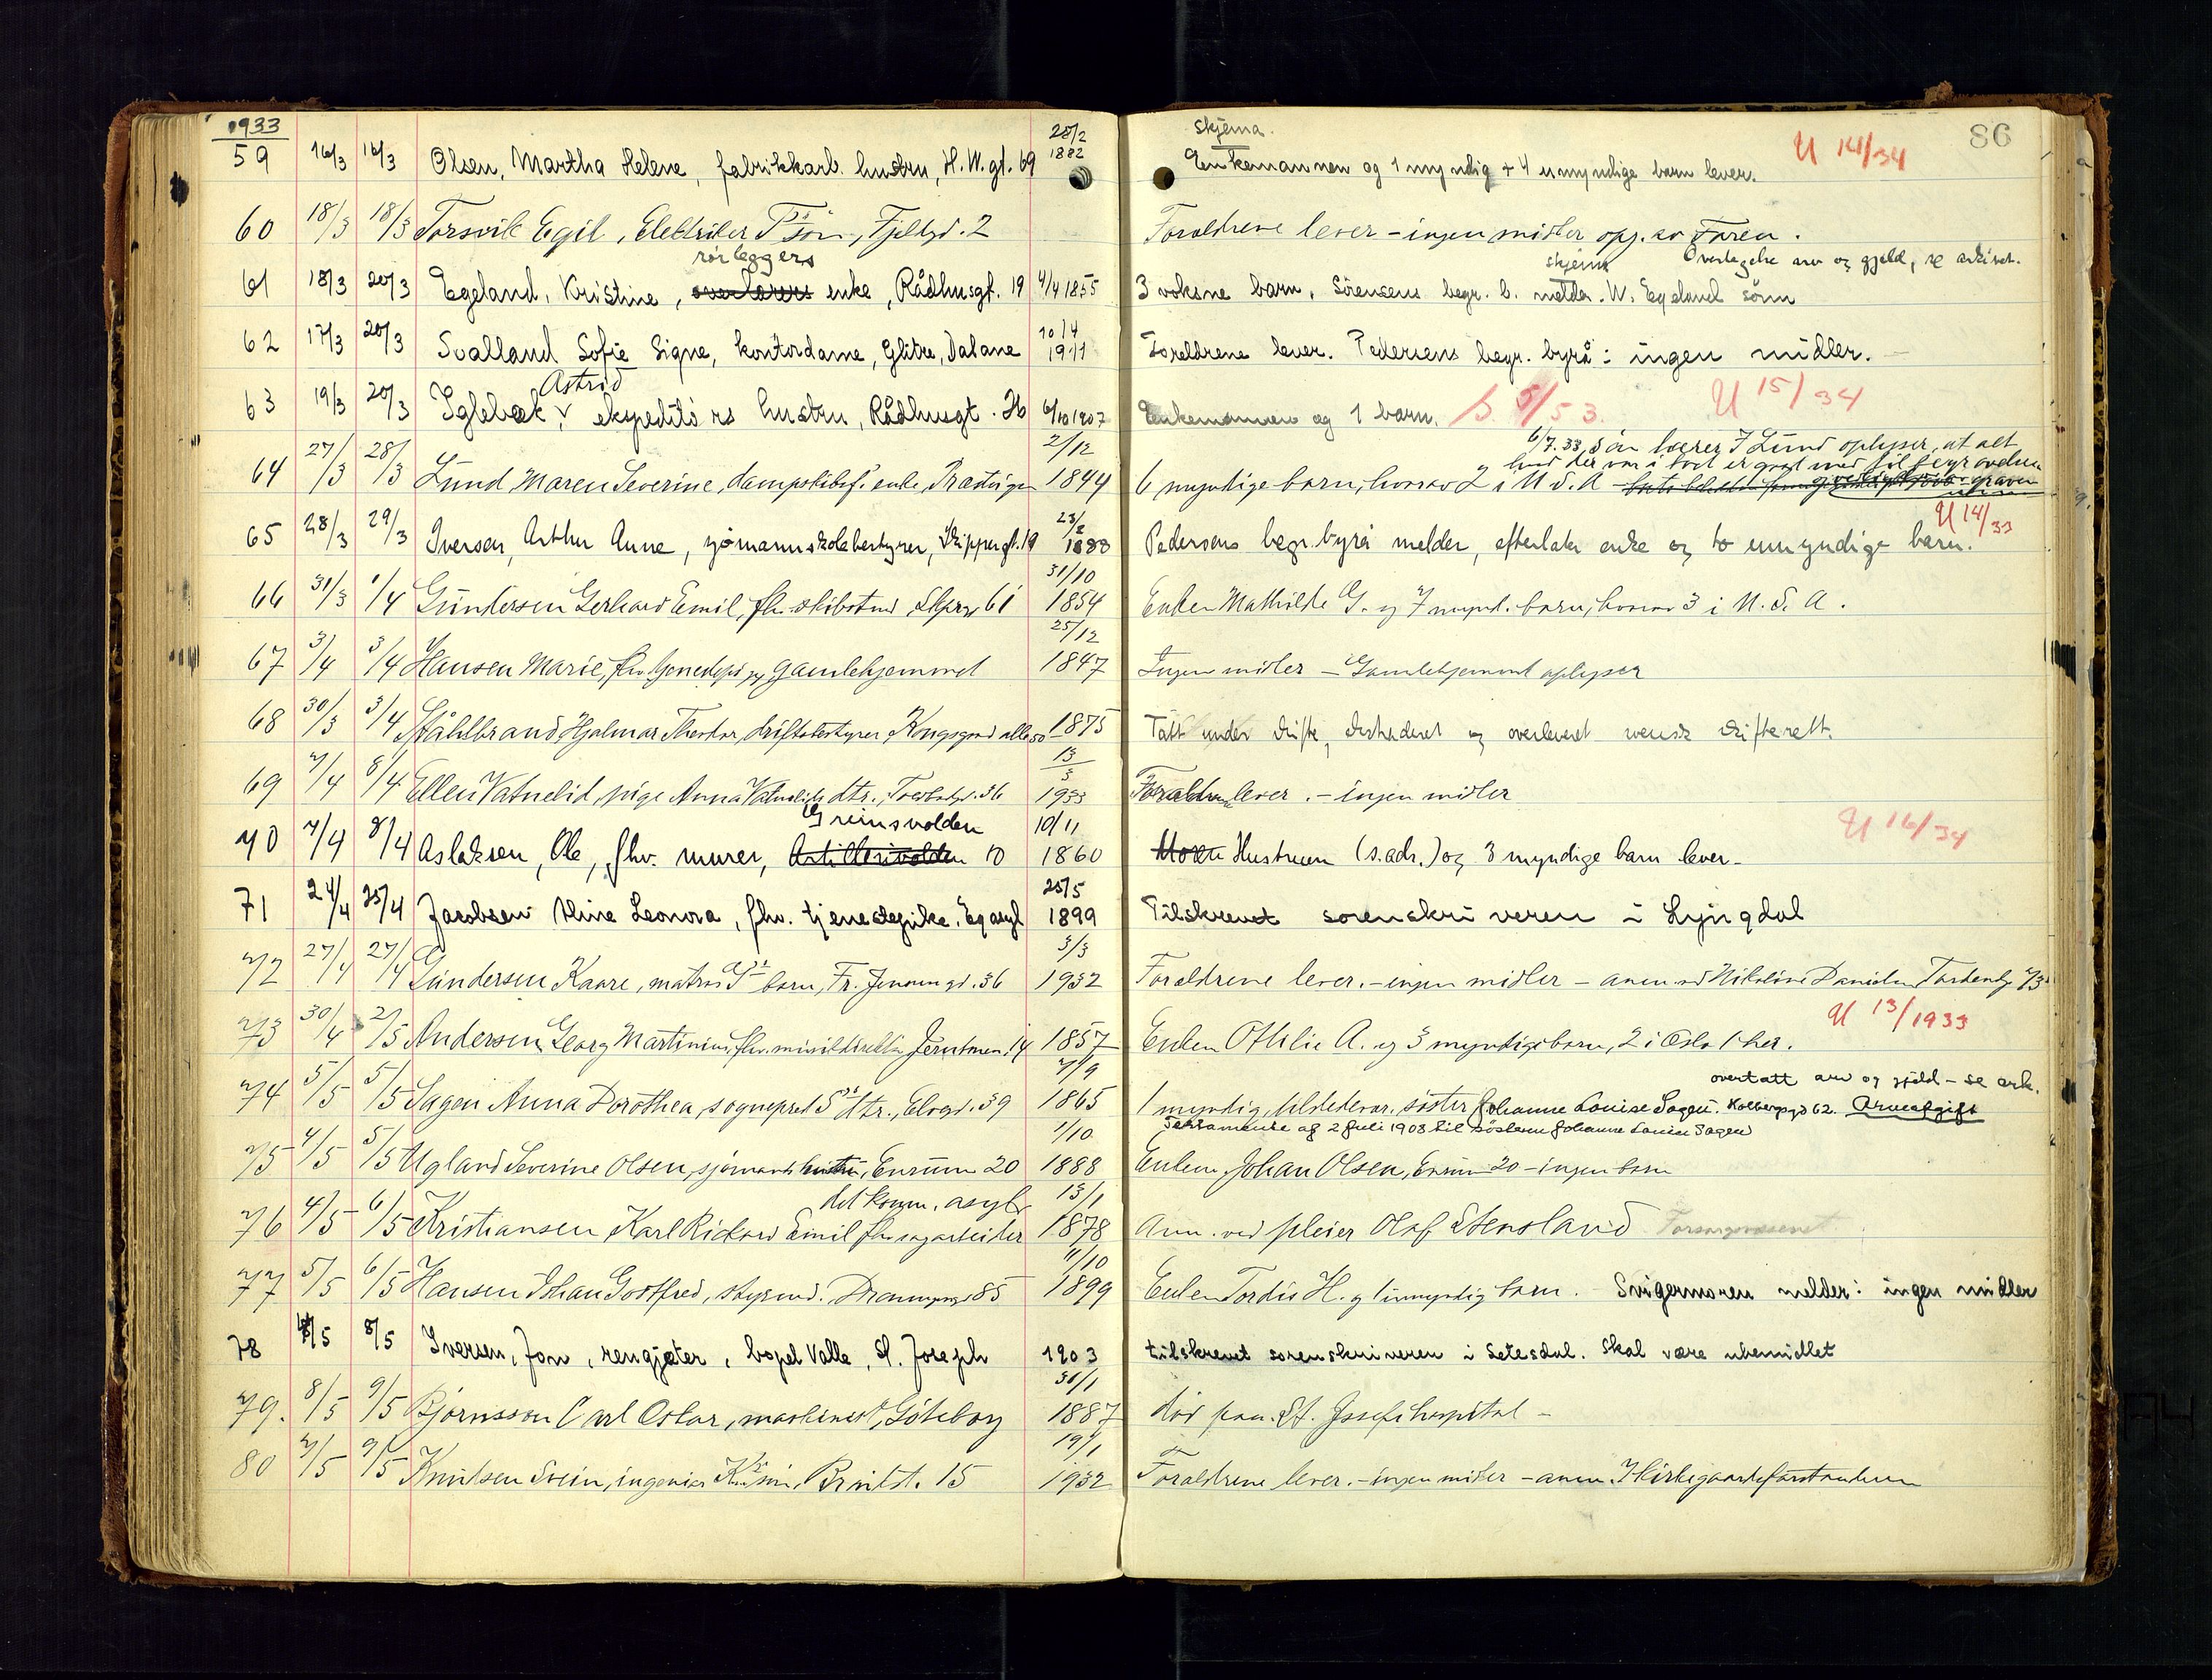 1933 28/2 skjema. 86
59 16/3 16/3 Olsen, Martha Helene, fabrikkarb. hustru, H.W.gt. 69 1882 Enkemannen og 1 myndig + 4 umyndige barn lever. U 14/34
60 18/3 18/3 Torsvik Egil, Elektriker T's søn, Fjellgd. 2 Foraldrene lever - ingen midler opg. av Faren.
rørleggers skjema Overtagelse arv og gjeld, se arkivet.
61 18/3 20/3 Egeland, Kristine, enke, Rådhusgt. 19 4/4 1855 3 voksne barn, Sörensens begr. b. melder. W. Egeland sönn
62 17/3 20/3 Svalland Sofie Signe, kontordame, Glitre, Dalane 10/4 1911 Foreldrene lever. Pedersens begr. byrå: ingen midler.
Astrid
63 19/3 20/3 Eglebæk, ekspeditörs hustru, Rådhusgt. 26 6/10 1907 Enkemannen og 1 barn. S. 5/53. U 15/34
2/12 6/7.33 Søn lærer J Lund oplyser, at alt
og hvad der var i bod er gaat med til begravelsen
64 27/3 28/3 Lund Maren Severine, dampskibsf. enke, 1844 6 myndige barn, hvorav 2 i U.S.A
23/2 U 14/33
65 28/3 29/3 Iversen, Arthur Anne, sjömannsskolebestyrer, Skippergt. 19 1888 Pedersens begr. byrå melder, efterlater enke og to umyndige barn.
31/10
66 31/3 1/4 Gundersen Gerhard Emil, fhv. skibstmd, 61 1854 Enken Mathilde G. og 7 mynd. barn, hvorav 3 i U.S.A.
25/12
67 3/4 3/4 Hansen Marie, fhv. tjenestepi gamlehjemmet 1847 Ingen midler - Gamlehjemmet oplyser
68 30/3 3/4 Ståhlbrand Hjalmar Theodor, driftsbestyrer, Kongsgaard alle 50 1875 Tatt under skifte, ekstraderet og overleveret svensk skifterett.
13/3
69 7/4 8/4 Ellen Vatnelid, pige Anna Vatnelids dtr., 36 1933 Foraldrene lever. - ingen midler
Greinsvolden 10/11 U 16/34
70 7/4 8/4 Aslaksen, Ole, fhv. murer, Artillerivolden 10 1860 Hustruen (s.adr.) og 3 myndige barn lever-
25/5
71 24/4 25/4 Jacobsen Aline Leonora, fhv. tjenestepike, Eg asyl 1899 Tilskrevet sorenskriveren i Lyngdal
3/3
72 27/4 27/4 Gundersen Kaare, matros G's barn, Fr. gd. 36 1932 Foraldrene lever. - ingen midler - anm. ved Nikoline Danielsen 73
U 13/1933
73 30/4 2/5 Andersen Georg Martinius, fhv. 14 1857 Enken Ottilie A. og 3 myndige barn, 2 i Oslo 1 her.
7/9 overtatt arv og gjeld - se ark.
74 5/5 5/5 Sagen Anna Dorothea, sogneprest S's dtr., Elvegd. 39 1865 1 myndig, tilstedevær. søster Johanne Louise Sagen. Holbergsgd 62. Arveafgift
1/10 Testamente af 2 Juli 1903 til søsteren Johanne Louise Sagen
75 4/5 5/5 Ugland Severine Olsen, sjømands hustru, Enrum 20 1888 Enkem. Johan Olsen, Enrum 20 - ingen barn
det komm. asyl 13/1
76 4/5 6/5 Kristiansen Karl Rickard Emil fhv. sagarbeider 1878 Anm. ved pleier Olaf Stensland Forsorgsvæsenet
11/10
77 5/5 6/5 Hansen Johan Gottfred, styrmd. Dronningensgt 85 1899 Enken Tordis H. og 1 umyndig barn. Svigermoren melder: ingen midler
78 4/5 8/5 Iversen, Jon, rengjæter, bopel Valle, St. Joseph 1903 tilskrevet sorenskriveren i Setesdal. Skal være ubemidlet
31/1
79. 8/5 9/5 Bjørnsson Carl Oskar, maskinist, Göteborg 1887 død paa St. Josefs hospital -
19/1
80 7/5 9/5 Knutsen Svein, ingeniør K's søn, 15 1932 Foraldrene lever. - ingen midler - anm. Kirkegaardsforstanderen